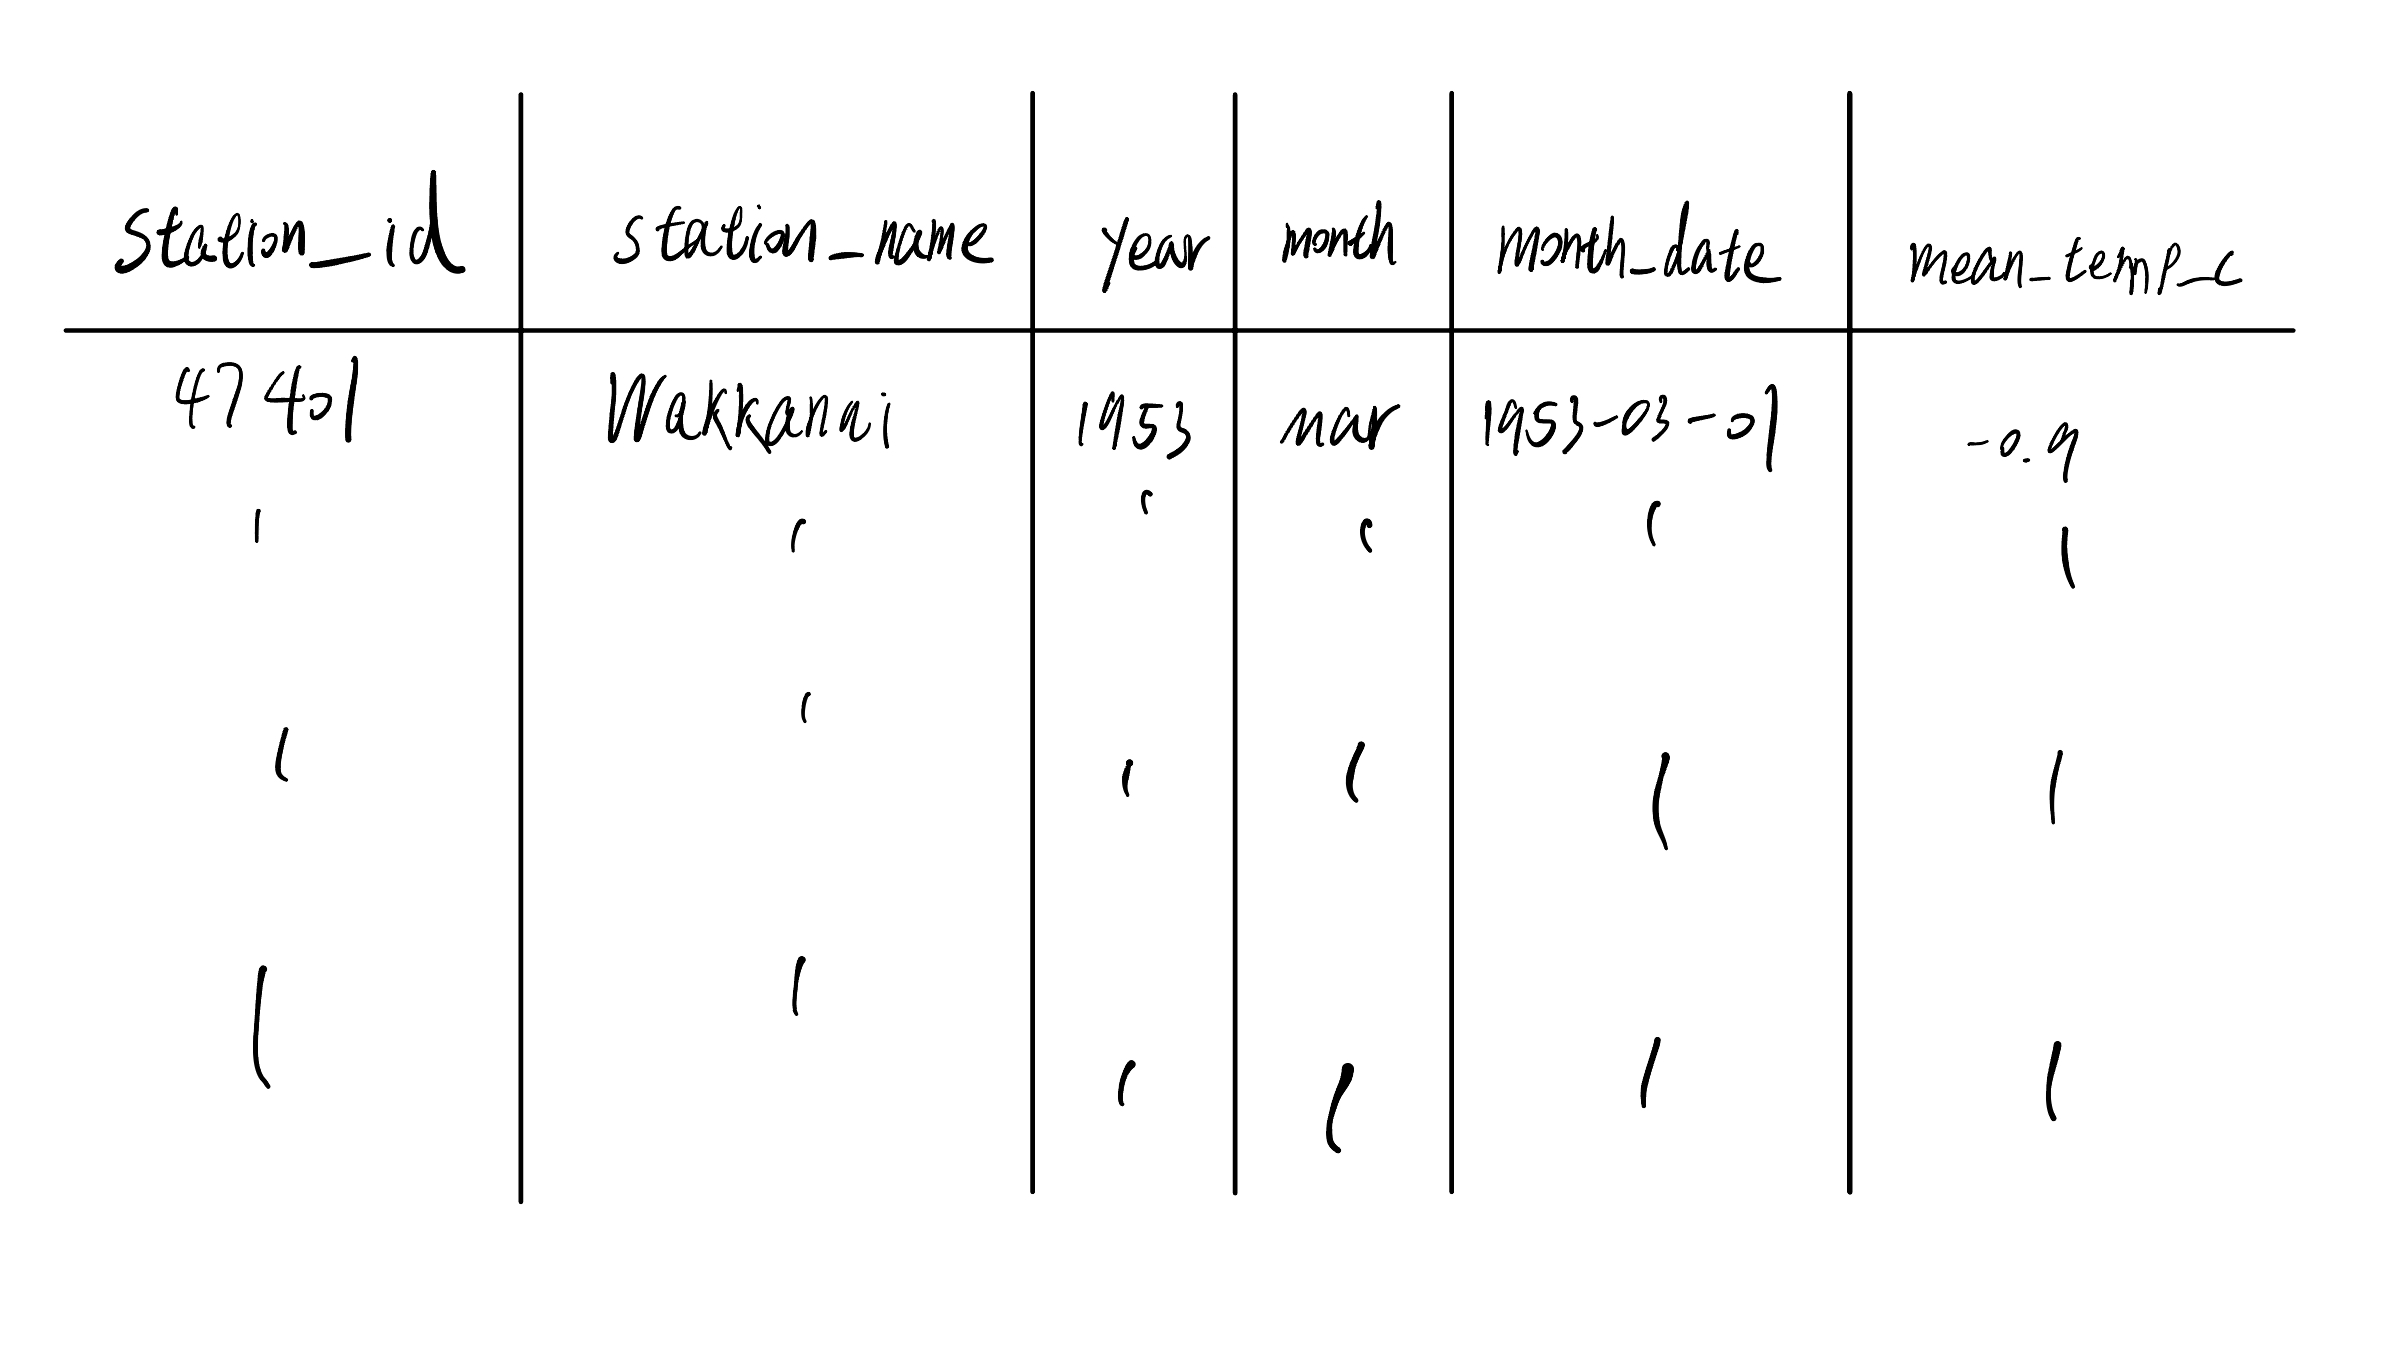 station_id station_name year month month_date mean_temp_c
47401 Wakkanai 1953 mar 1953-03-01 -0.9